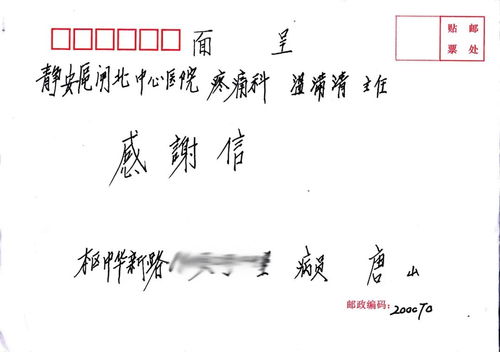 面 呈
贴 邮
票 处
静安区闸北中心医院 疼痛科 主任
感謝信
中华新路 病员 唐山
邮政编码：200070